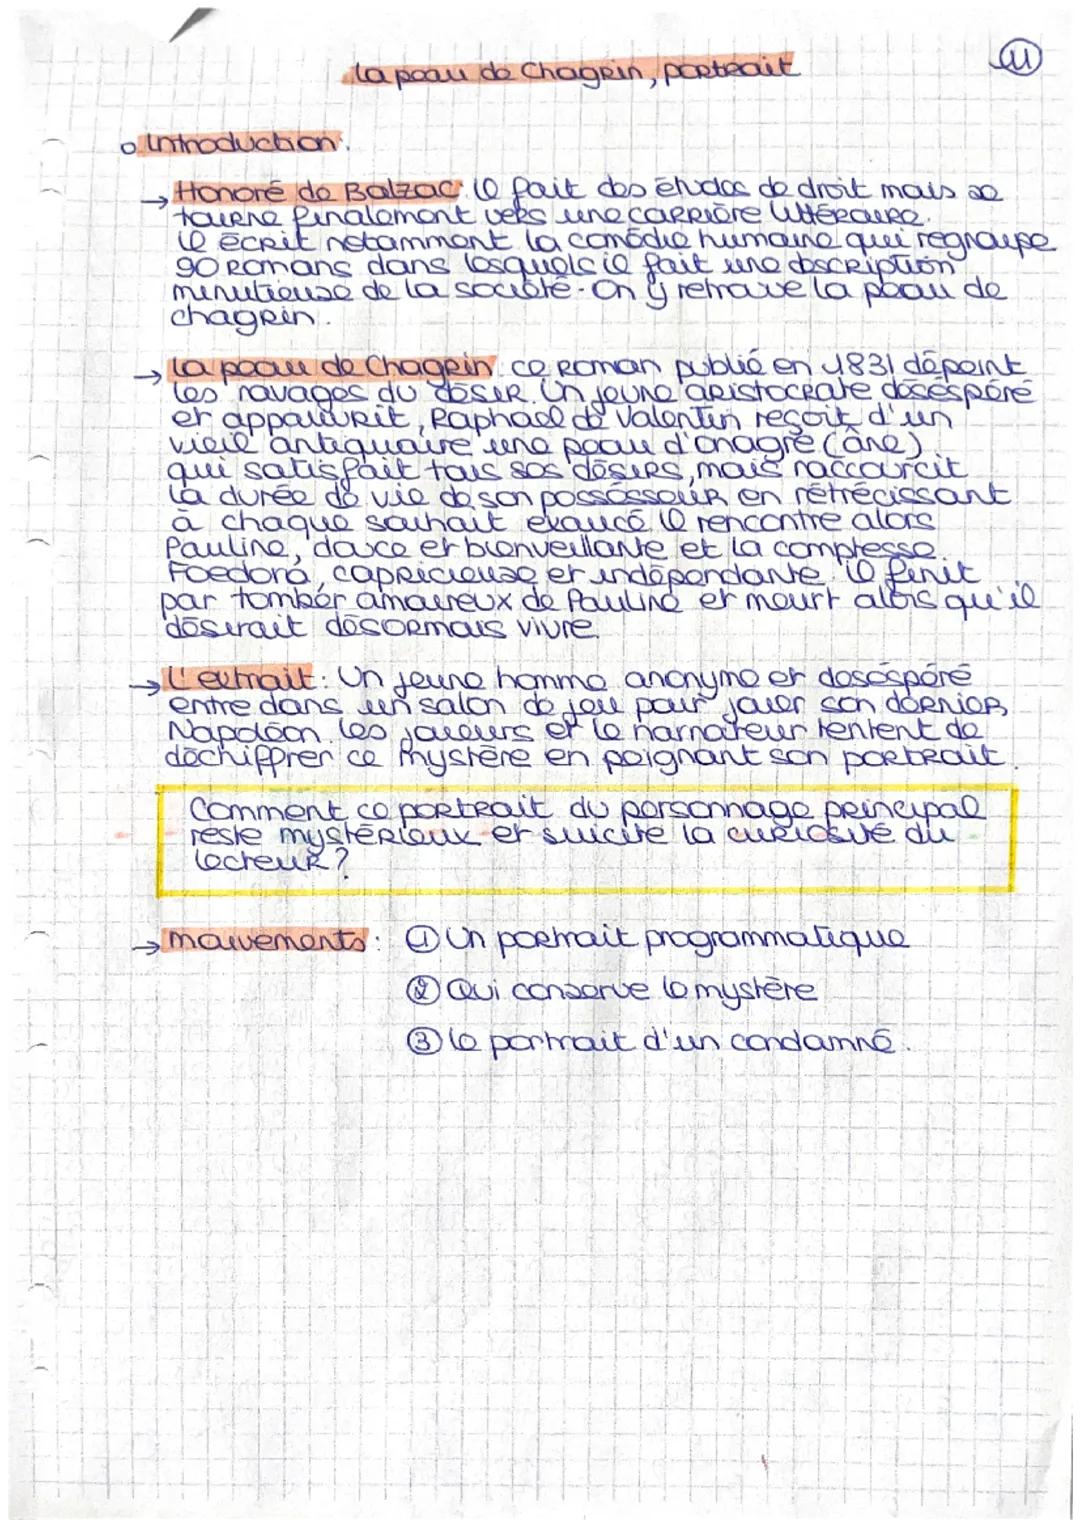 La peau de Chagrin, portrait
11
Introduction:
→ Honoré de Balzac: il fait des études de droit mais se
tourne finalement vers une carrière littéraire.
Il écrit notamment la comédie humaine qui regroupe
90 romans dans lesquels il fait une description
minutieuse de la société. On y retrouve la peau de
chagrin.
→ La peau de Chagrin: ce roman publié en 1831 dépeint
les ravages du désir. Un jeune aristocrate désespéré
et appauvrit, Raphael de Valentin reçoit d'un
vieil antiquaire une peau d'onagre (âne)
qui satisfait tous ses désirs, mais raccourcit
la durée de vie de son possésseur en rétrécissant
à chaque souhait exaucé. Il rencontre alors
Pauline, douce et bienveillante et la comptesse
Foedora, capricieuse et indépendante. Il finit
par tomber amoureux de Pauline et meurt alors qu'il
désirait désormais vivre.
→ L'extrait: Un jeune homme anonyme et désespéré
entre dans un salon de jeu pour jouer son dernier
Napoléon. Les joueurs et le narrateur tentent de
déchiffrer ce mystère en peignant son portrait.
Comment ce portrait du personnage principal
reste mystérieux et suicite la curiosité du
lecteur?
→ mouvements: ① Un portrait programmatique
② Qui conserve le mystère
③ le portrait d'un condamné.